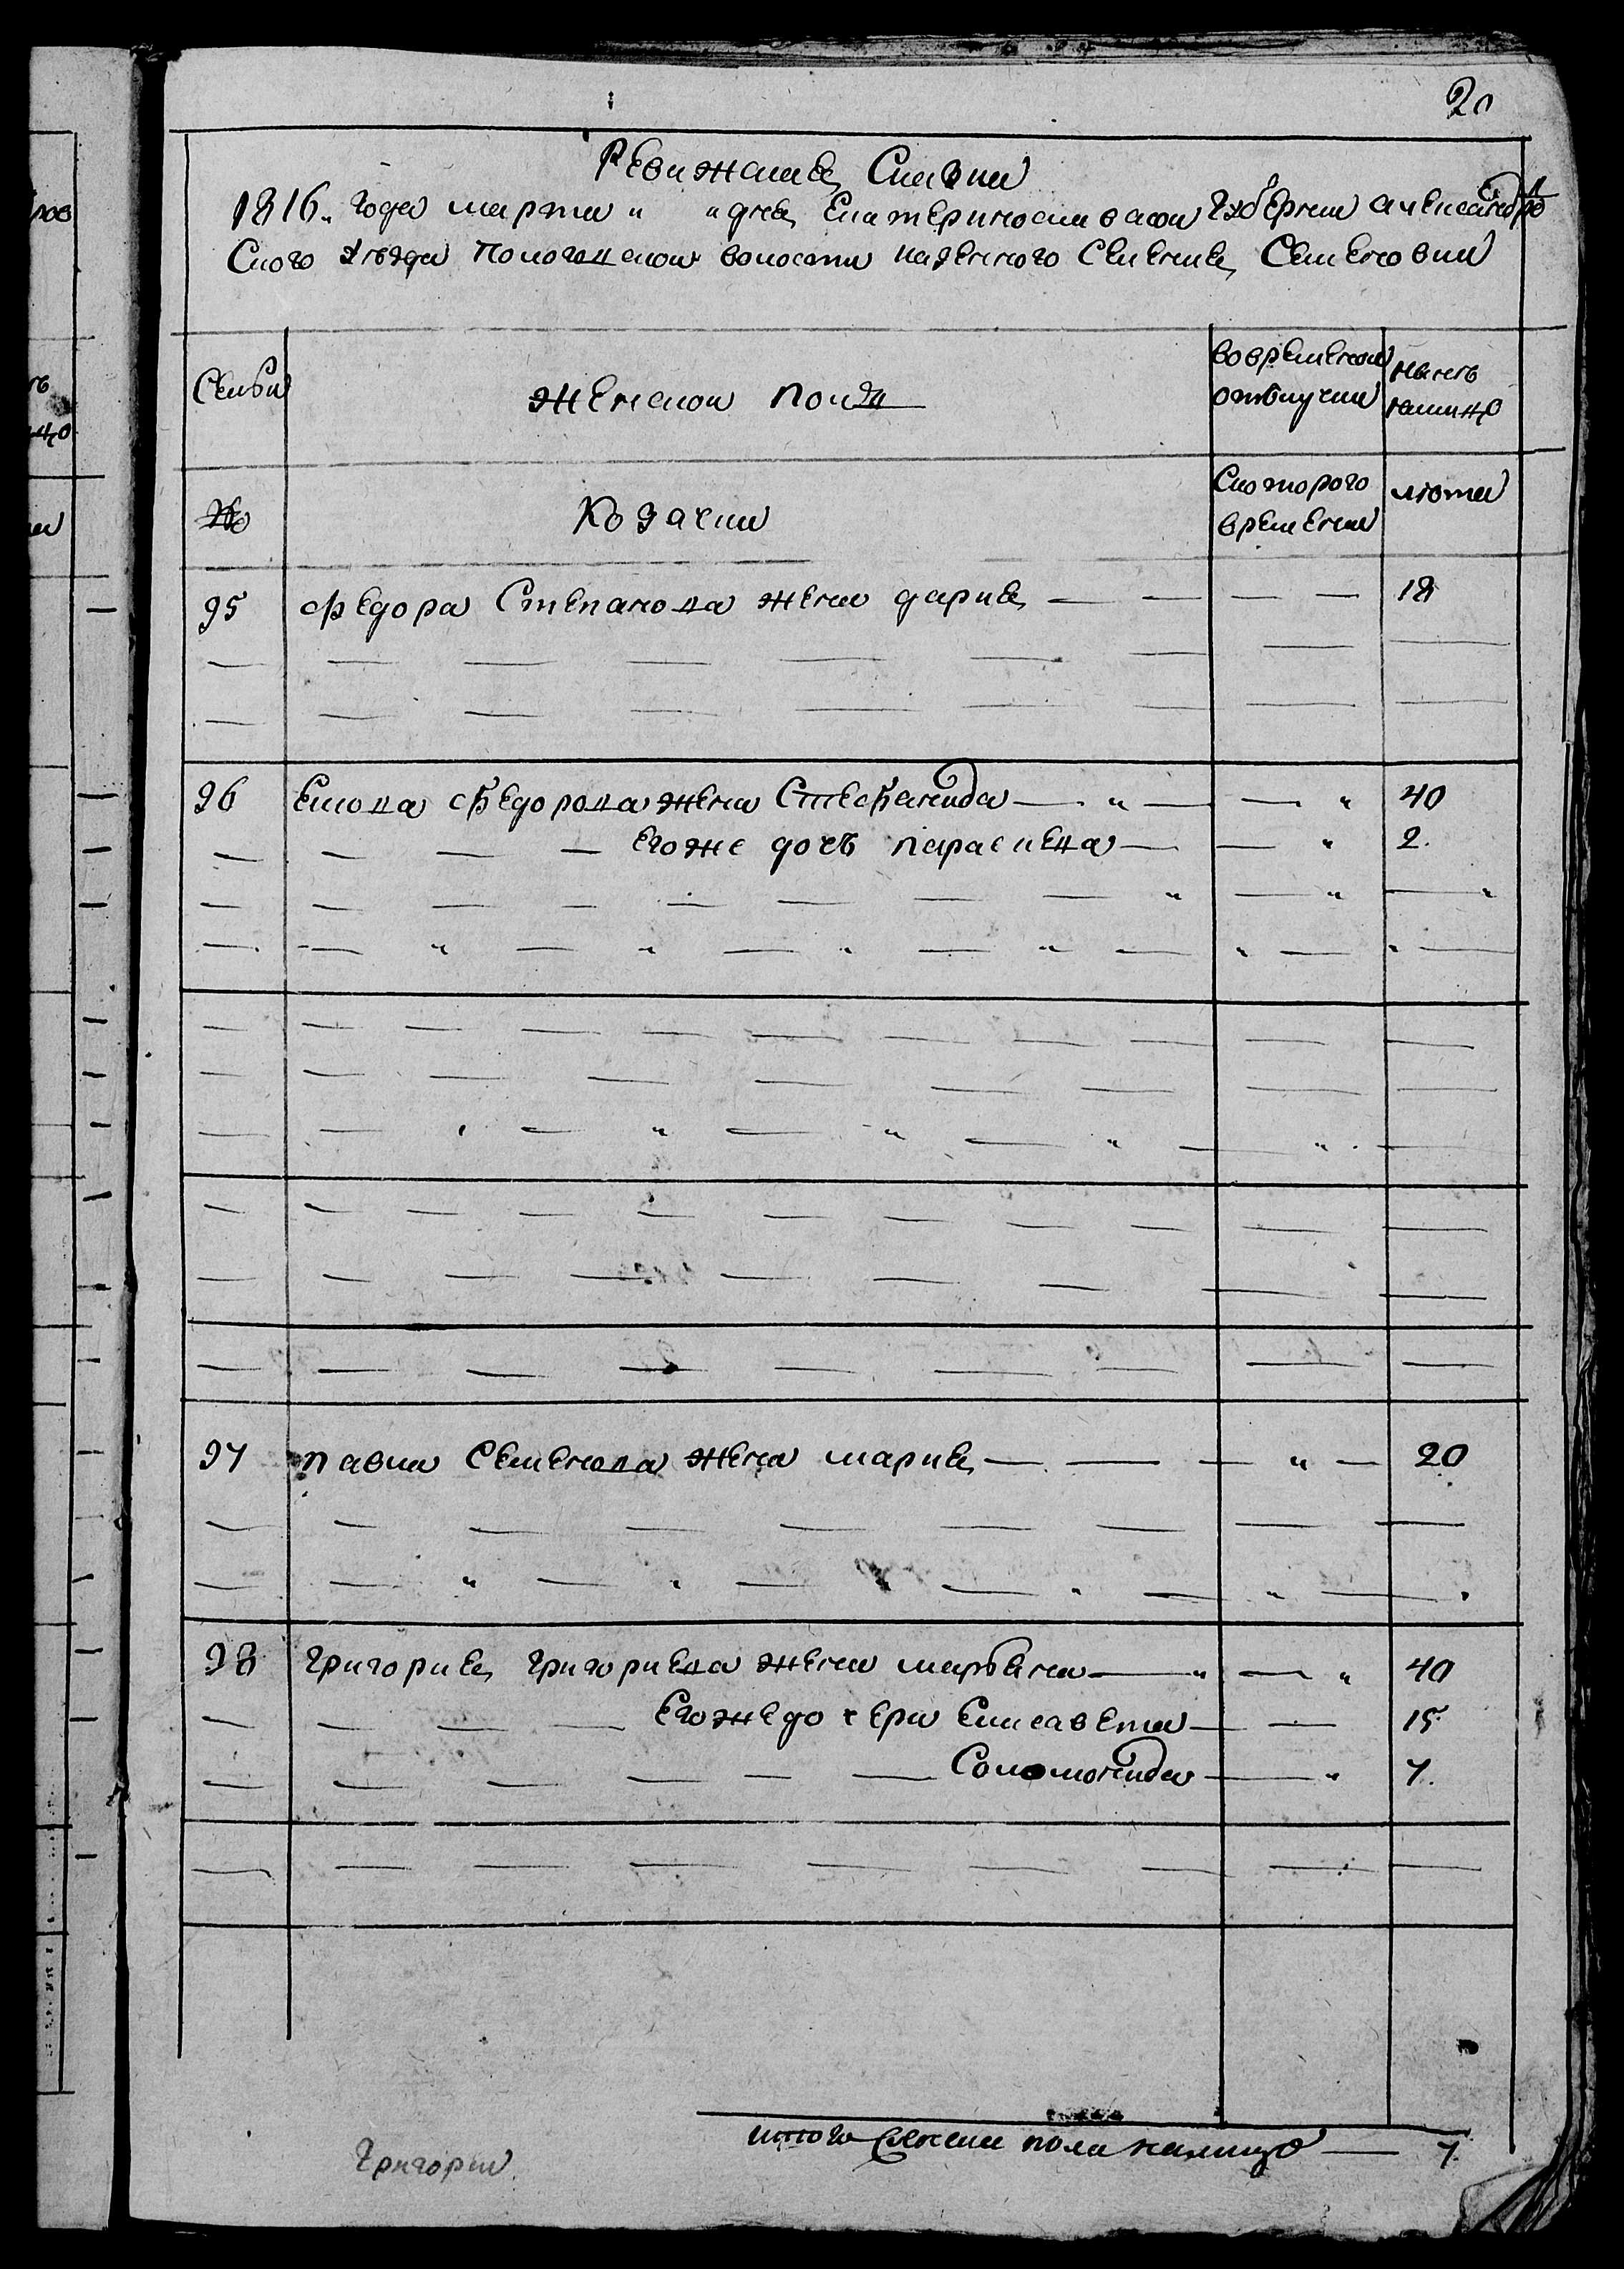 20
Ревижская Сказка
1816„ года марта „ „ дня Екатеринославской Губернии Александров
Ского Уезда Пологовской волости казенного Селения Семеновки
Семьи
женской пол
во временной
отлучки
ныне
налицо
№
Козачки
С которого
времени
лета
95 Федора Степанова жена дария — — — — 18
96 Екова Федорова жена Стефанида — „ — — „ 40
Егоже дочь параскева — — „ 2.
97 павла Семенова жена мария — — — „ — 20
98 григория григориева жена марьяна — „ — „ 40
Егоже дочери Елисавета — — 15
Соломонида — „ 7.
итого женска пола налицо — 7
Григории
ров
цо